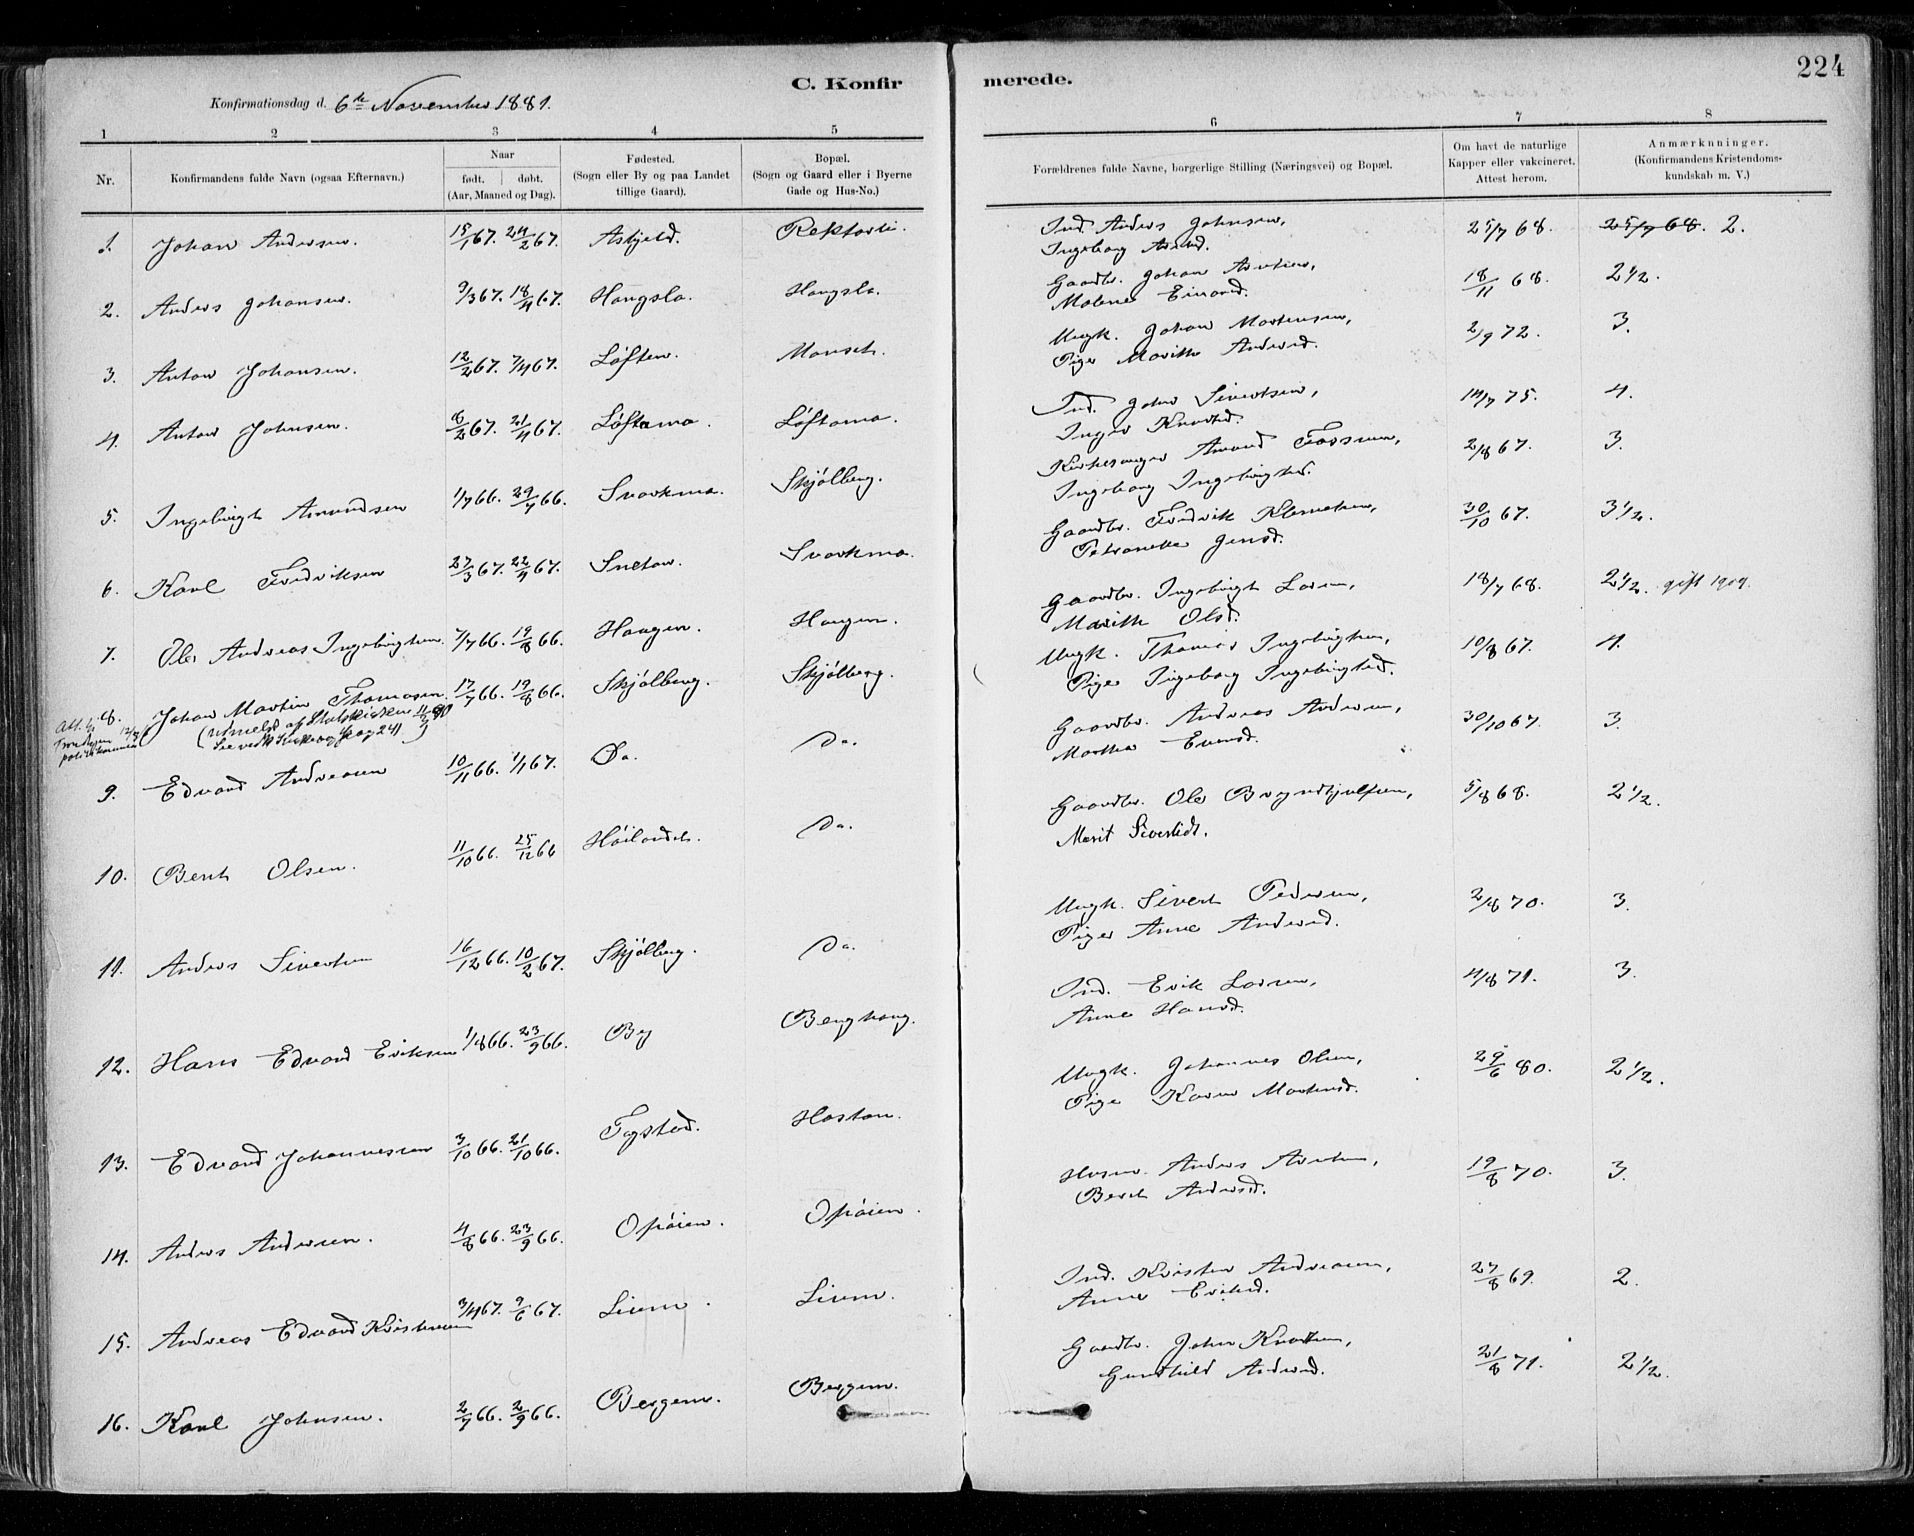 C. Konfirmerede.
224
Konfirmationsdag d. 6te November 1881.
1 2 3 4 5 6 7 8
Nr.
Konfirmandens fulde Navn (ogsaa Efternavn.)
Naar
født. døbt.
(Aar, Maaned og Dag).
Fødested.
(Sogn eller By og paa Landet
tillige Gaard).
Bopæl.
(Sogn og Gaard eller i Byerne
Gade og Hus-No.)
Forældrenes fulde Navne, borgerlige Stilling (Næringsvei) og Bopæl.
Om havt de naturlige
Kapper eller vakcineret.
Attest herom.
Anmærkninger.
(Konfirmandens Kristendoms-
kundskab m. V.)
1. Johan Andersen. 15/1 67. 24/2 67. Asbjeld. Rektorli. Ind. Anders Johnsen, 25/7 68. 25/7 68. 2.
Ingeborg
2. Anders Johansen. 9/3 67. 18/4 67. Hongslo. Hongslo. Gaardbr. Johan 18/11 68. 2 1/2.
Malene Einarsd.
3. Anton Johansen. 12/2 67. 7/4 67. Løften. Ungk. Johan Mortensen, 2/9 72. 3.
Pige Marith Andersd.
4. Anton Johnsen. 8/2 67. 21/4 67. Løftamo. Løftamo. Ind. John Sivertsen, 14/7 75. 4.
Inger Knutsd.
5. Ingebrigt Amundsen 1/7 66. 29/7 66. Svorkmo. Skjølberg. Kirkesanger Amund Fossum, 2/8 67. 3.
Ingeborg Ingebrigtsd.
6. Karl Fredriksen 27/3 67. 22/4 67. Snetan. Svorkmo. Gaardbr. Fredrik Klemetsen, 30/10 67. 3 1/2.
Petronelle Jensd.
7. Ole Andreas Ingebrigtsen 7/7 66. 19/8 66. Haagen. Haugen. Gaardbr. Ingebrigt Larsen, 18/7 68. 2 1/2. gift 1909.
Marith Olsd.
8. Johan Martin Thomasen 17/7 66. 19/8 66. Skjølberg. Skjølberg. Ungk. Thomas Ingebrigtsen, 10/8 67. 4.
(Udmeldt af Statskirken 11/3 90
Pige Ingeborg Ingebrigtsd.
9. Edvard Andreasen 10/11 66. 1/1 67. Do. Do. Gaardbr. Andreas Andersen, 30/10 67. 3.
Martha Evensd.
10. Berit Olsen. 11/10 66. 25/12 66 Høilandet. Do. Gaardbr. Ole Bryndhjulfsen, 5/8 68. 2 1/2.
Marit Sivertsdt.
11. Anders Sivertsen 16/12 66. 10/2 67. Skjølberg. Do. Ungk. Sivert Pedersen, 2/8 70. 3.
Pige Anne Andersd.
12. Hans Edvard Eriksen 1/8 66. 23/9 66. By Berghaug. Ind. Erik Larsen, 4/8 71. 3.
Anne Hansd.
13. Edvard Johannesen 3/10 66. 21/10 66. Fogstad. Hoston. Ungk. Johannes Olsen, 29/6 80. 2 1/2.
Pige Karen Mortensd.
14. Anders Andersen. 4/8 66. 23/9 66. Opøien. Opøien. Husm. Anders 19/8 70. 3.
Berit Andersd.
15. Andreas Edvard Kristensen 3/4 67. 9/6 67. Lium. Lium. Ind. Kristen Andreasen, 27/8 69. 2.
Anne Eriksd.
16. Karl Johnsen. 2/7 66. 2/9 66. Bergem. Bergem. Gaardbr. John Knutsen, 21/8 71. 2 1/2.
Gunhild Andersd.